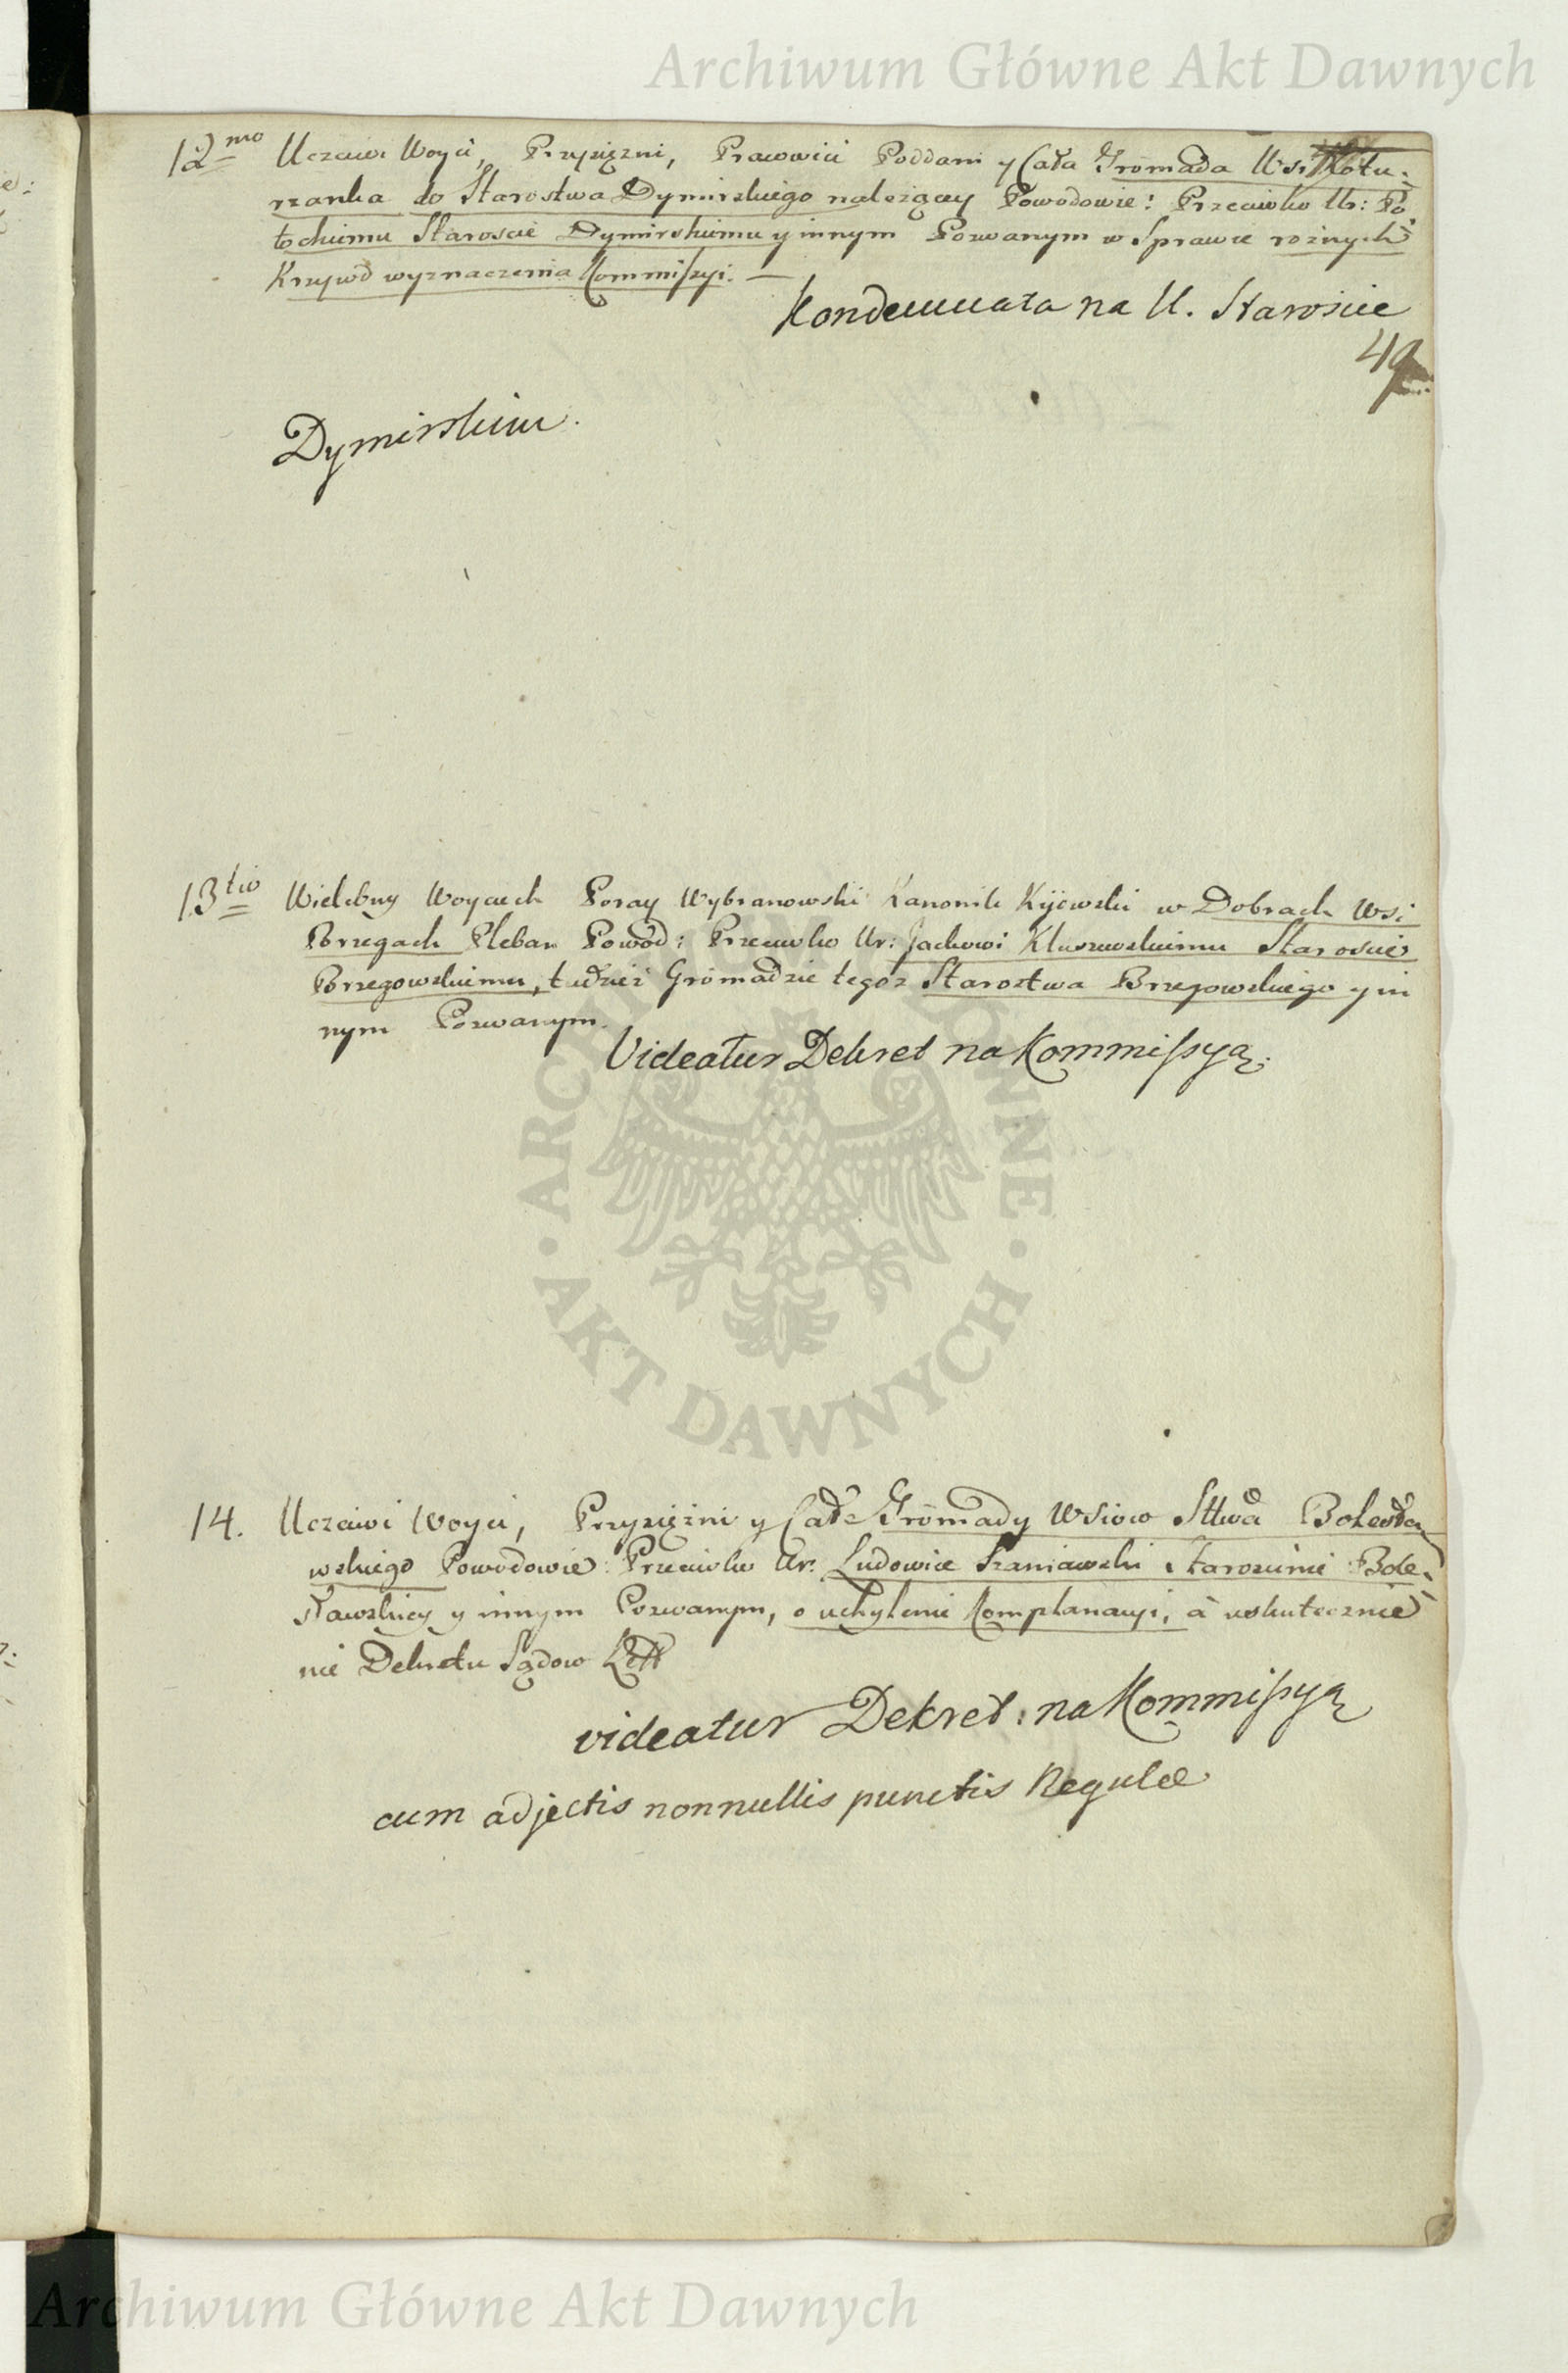 Archiwum Główne Akt Dawnych
12mo Uczciwi Woyci, Przysięzni, Prawowici Poddani y Cała Gromada Wsi Kotu:
rzanka do Starostwa Dymirskiego należący Powodowie: Przeciwko Ur: Po:
tockiemu Staroscie Dymirskiemu y innym Pozwanym w Sprawie rożnych
Krzywd wyznaczenia Kommissyi. —
Kondemnata na U. Staroscie
49
Dymirskim.
13tio Wielebny Woyciech Poray Wybranowski Kanonik Kijowski w Dobrach Wsi
Brzegach Pleban Powod: Przeciwko Ur: Jackowi Kluszewskiemu Staroscie
Brzegowskiemu, tudzież Gromadzie tegoz Starostwa Brzegowskiego y in
nym Pozwanym.
Videatur Dekret na Kommissyą.
14. Uczciwi Woyci, Przysiężni y Całe Gromady Wsiow Sttwa Bolesła
wskiego Powodowie: Przeciwko Ur. Ludowice Szaniawski Starościnie Bole:
sławskiey y innym Pozwanym, o uchylenie Komplanacyi, à uskutecznie
nie Dekretu Sądow
videatur Dekret: na Kommissyą
cum adjectis nonnullis punctis Regulæ
ARCHIWUM GŁÓWNE • AKT DAWNYCH •
Archiwum Główne Akt Dawnych